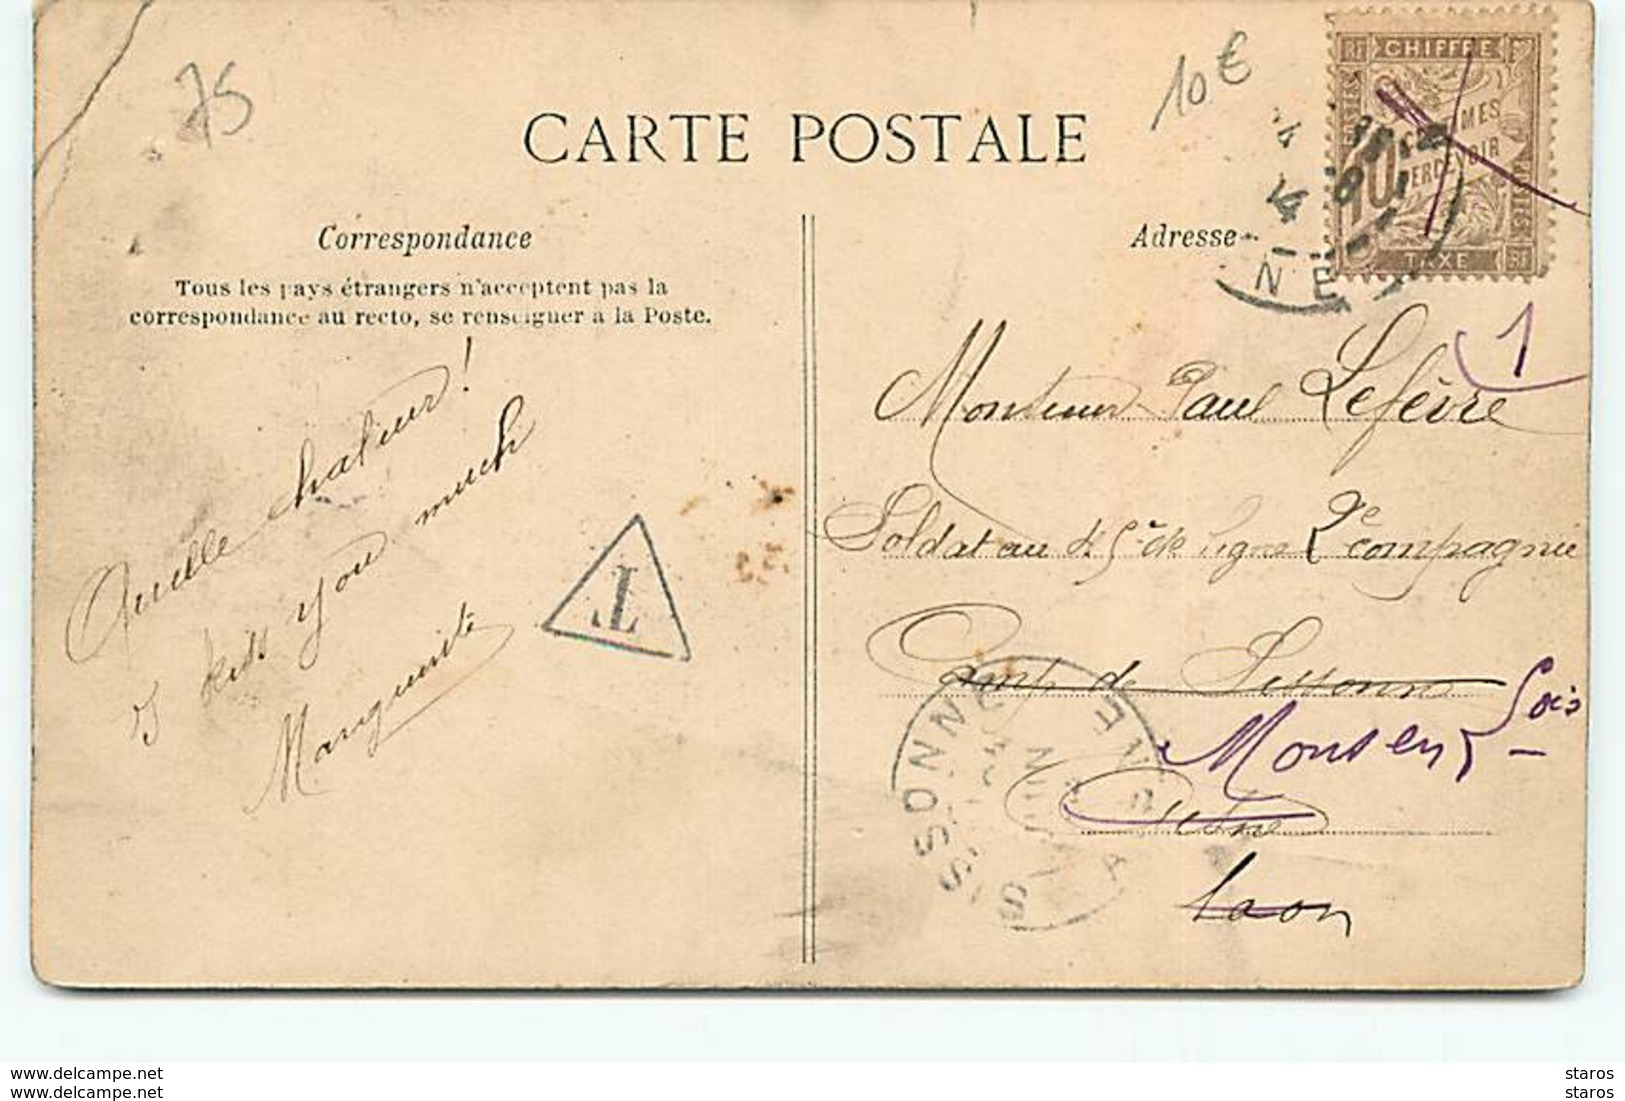 75
10€
CARTE POSTALE
RF CHIFFRE
10 CENTIMES
PERCEVOIR
POSTES
TAXE RF
NE
Correspondance
Adresse
Tous les pays étrangers n'acceptent pas la
correspondance au recto, se renseigner à la Poste.
1
Quelle chaleur!
I kiss you much
Marguerite
T
Monsieur Paul Lefèvre
Soldat au 45e de ligne 2e compagnie
Camp de Sissonne
Aisne
Laon
SISSONNE
www.delcampe.net
www.delcampe.net
staros
staros